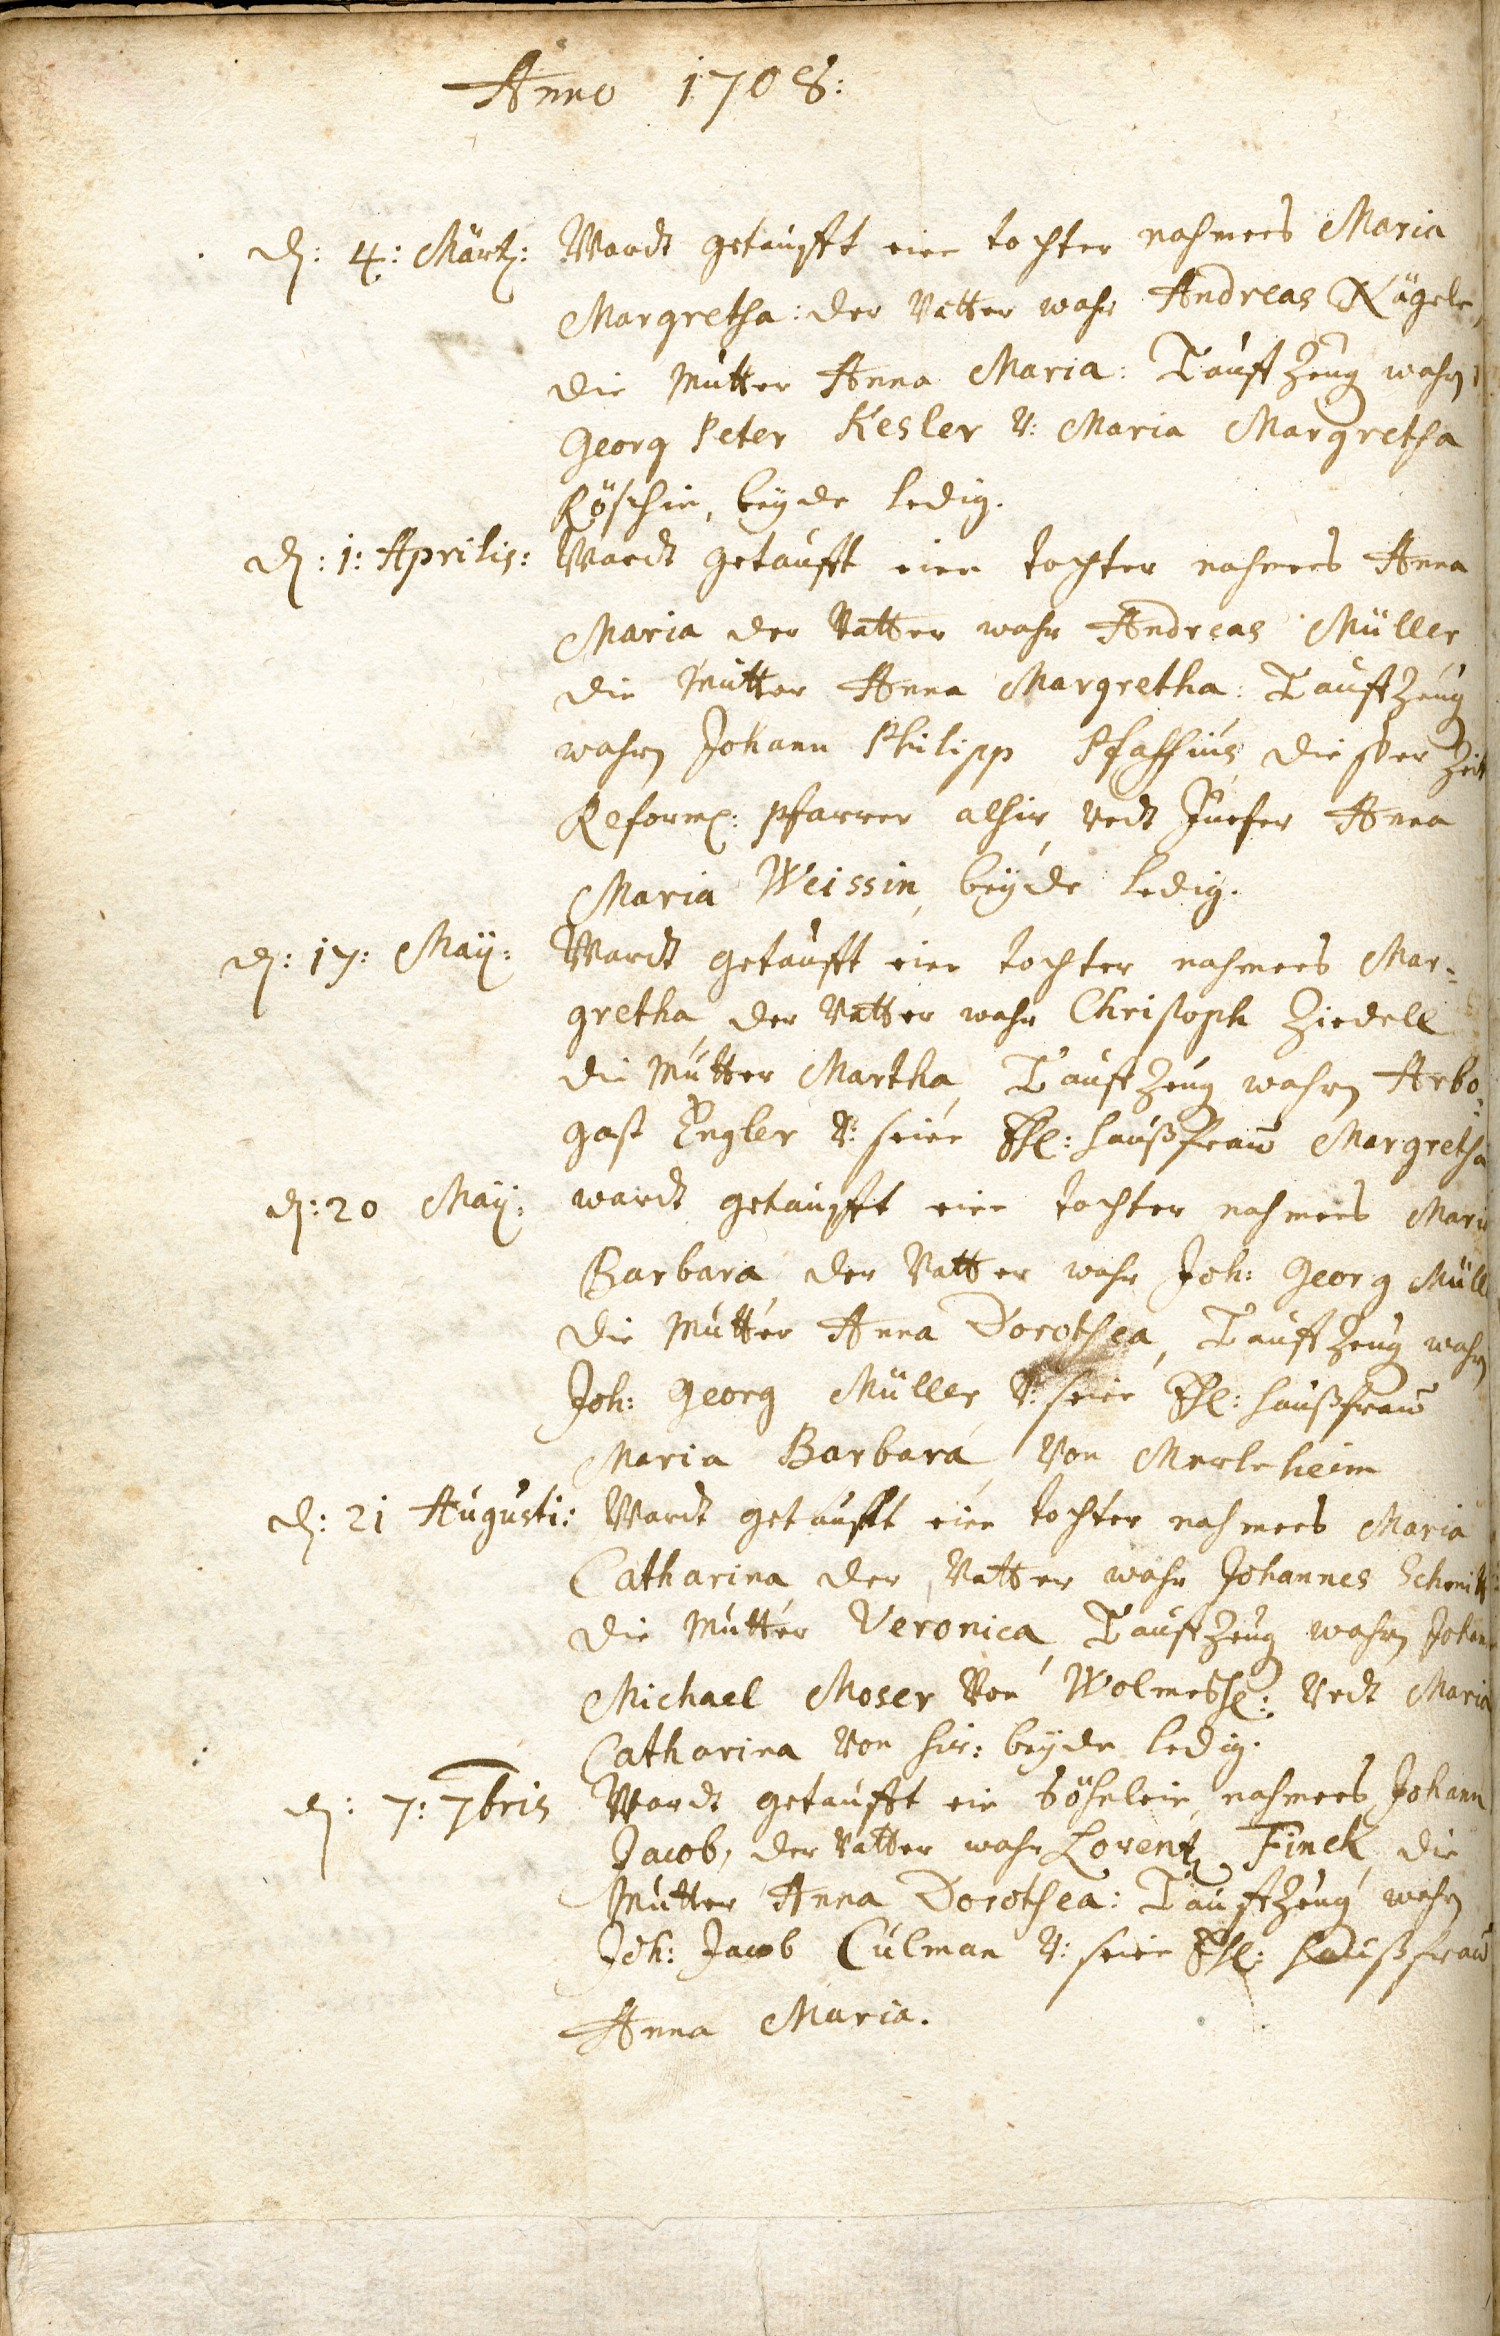 Anno 1708:
d: 4: Märtz: Wardt getaufft eine tochter nahmens Maria
Margretha: der Vatter wahr Andreas Nägele,
die Mutter Anna Maria: Tauff Zeug wahrn
Georg Peter Kesler V: Maria Margretha
Röschin, beyde ledig.
d: 1: Aprilis: Wardt getaufft eine tochter nahmens Anna
Maria der Vatter wahr Andreas Müller
die Mutter Anna Margretha: Tauff Zeug
wahrn Johann Philipp Pfaffius dießer Zeit
Reform: Pfarrer alhir, Vndt Jungfer Anna
Maria Weissin, beyde ledig.
d: 17: May: Wardt getaufft eine tochter nahmens Mar-
gretha, der Vatter wahr Christoph Ziedell
die Mutter Martha, Tauff Zeug wahrn Arbo-
gast Engler V: seine Ehl: Haußfrau Margretha
d: 20 May: wardt getaufft eine tochter nahmens Mari
Barbara, der Vatter wahr Joh: Georg Mülle
die Mutter Anna Dorothea, Tauff Zeug wahrn
Joh: Georg Müller V: seine Ehl: Haußfrau
Maria Barbara, Von Merleheim
d: 21 Augusti: Wardt getaufft eine tochter nahmens Maria
Catharina der Vatter wahr Johannes Schmitt
die Mutter Veronica, Tauff Zeug wahrn Johann
Michael Moser Von Wolmesh: Vndt Maria
Catharina Von hir: beyde ledig.
d: 7: 7bris Wardt getaufft ein Söhnlein, nahmens Johann
Jacob, der Vatter wahr Lorentz Finck, die
Mutter Anna Dorothea: Tauff Zeug wahrn
Joh: Jacob Culman V: seine Ehl: Haußfrau
Anna Maria.